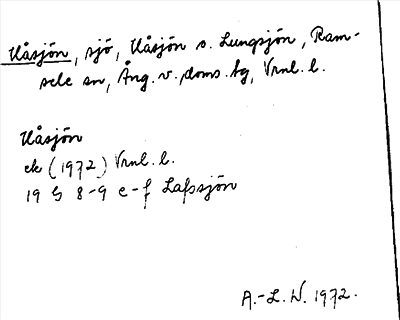 Håsjön, sjö, Håsjön s. Lungsjön, Ram-
sele sn, Ång. v. doms. hg, Vrnl. l.
Håsjön
ek (1972) Vrnl. l.
19 G 8-9 e-f Lafssjön
A.-L. N. 1972.